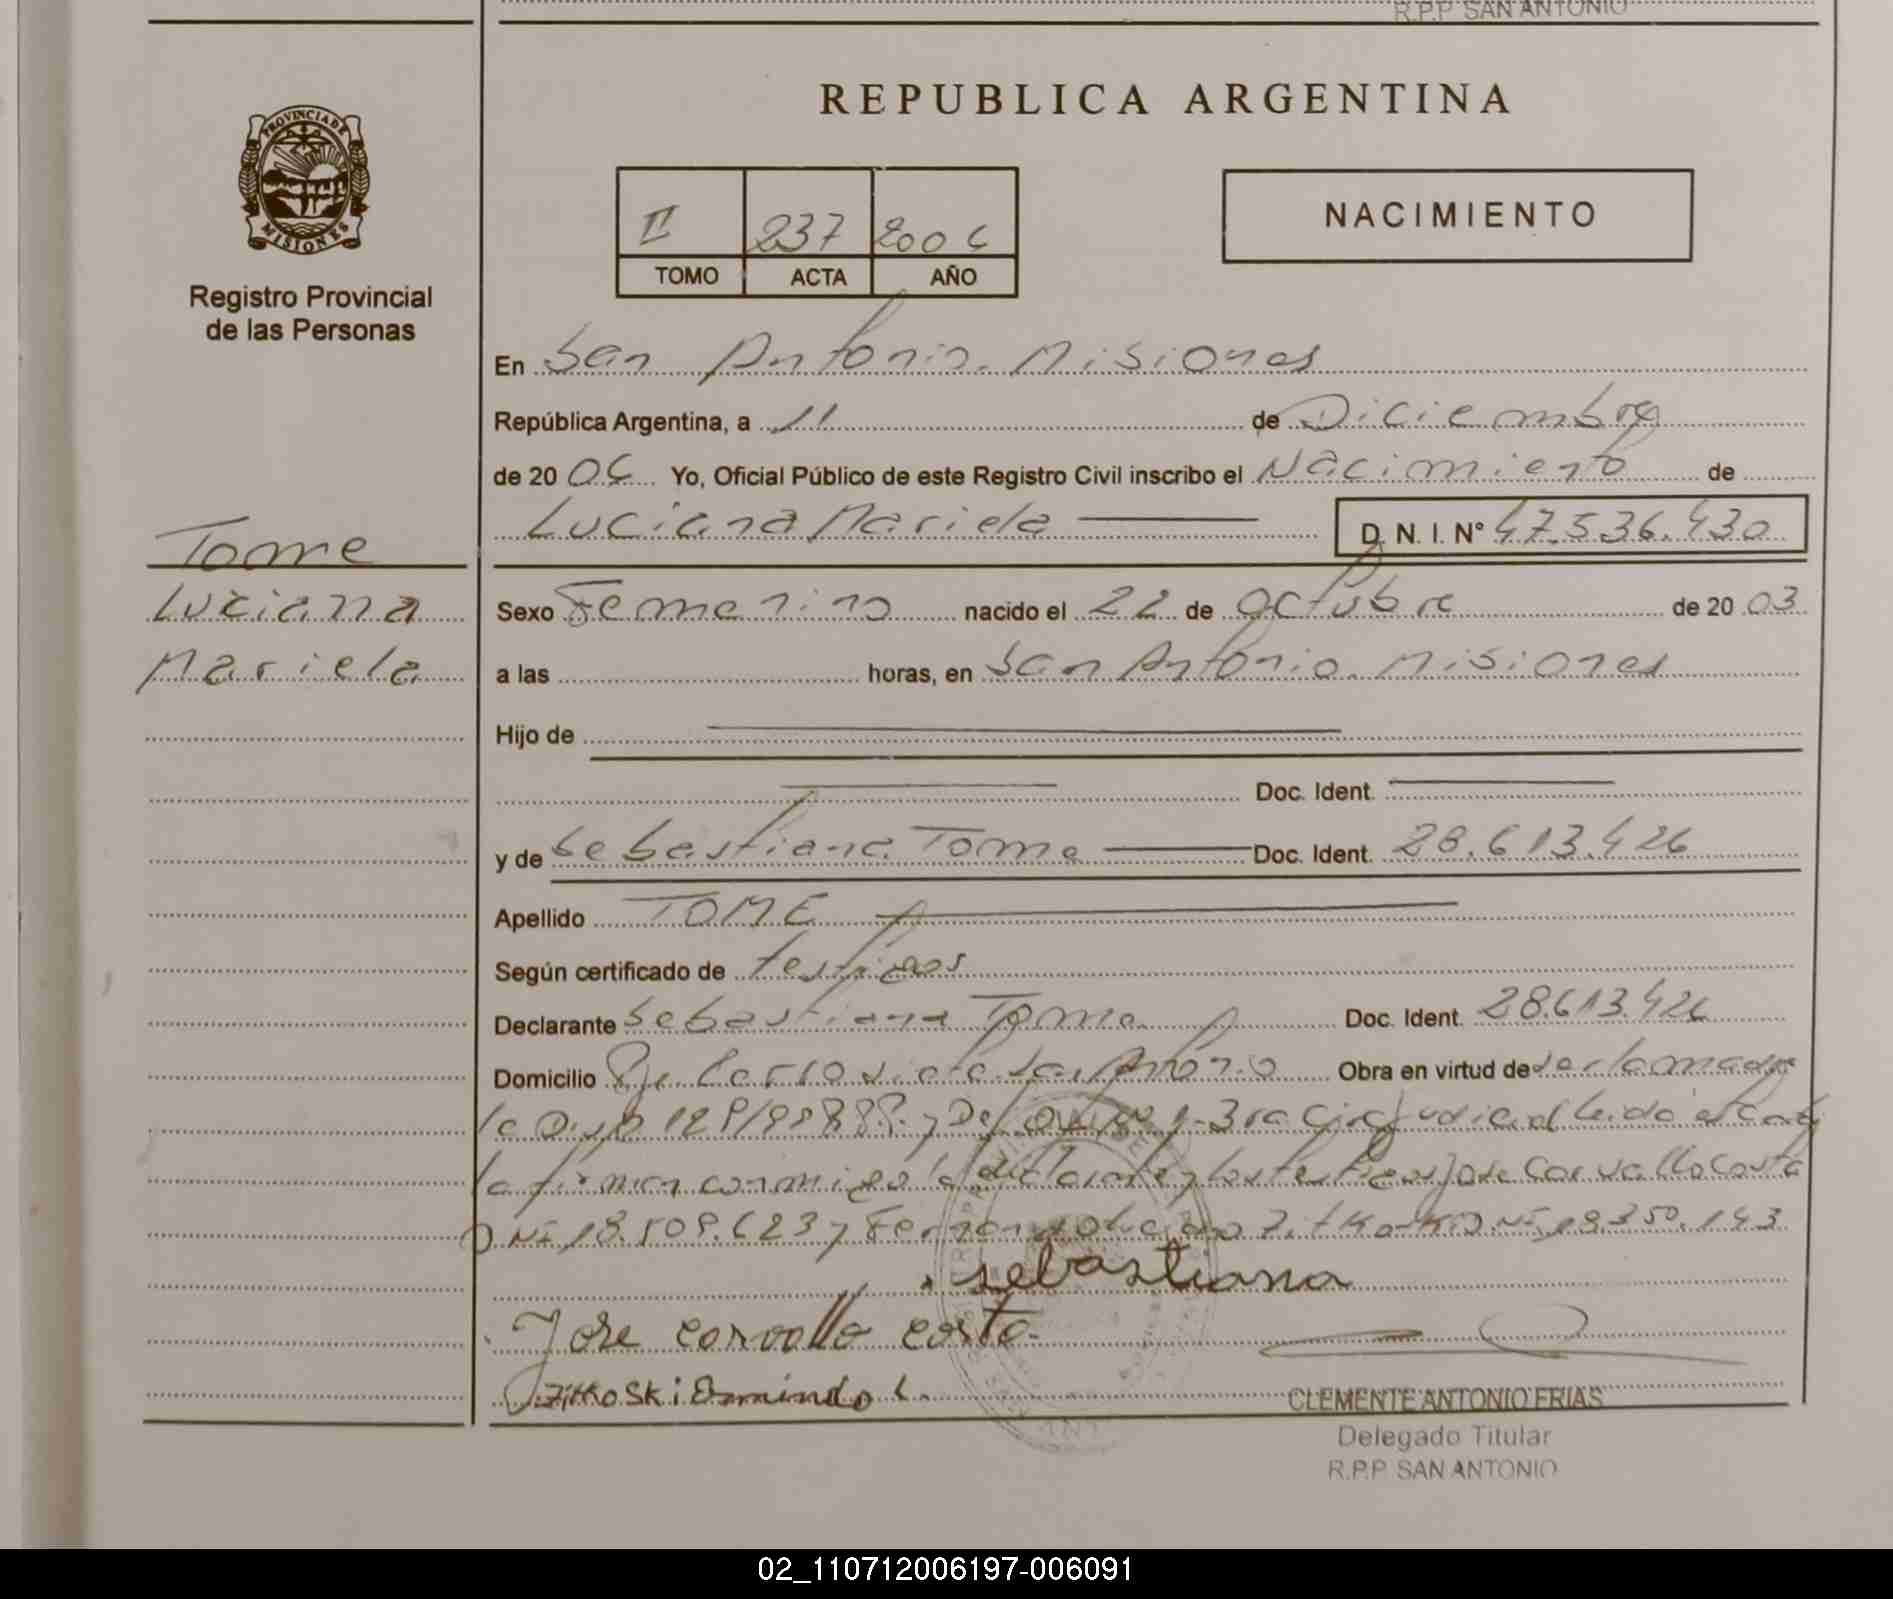 R.P.P SAN ANTONIO
REPUBLICA ARGENTINA
PROVINCIA DE
MISIONES
Registro Provincial
de las Personas
II 237 2006
TOMO ACTA AÑO
NACIMIENTO
En San Antonio. Misiones
República Argentina, a 11 de Diciembre
de 20 06 Yo, Oficial Público de este Registro Civil inscribo el Nacimiento de
Luciana Mariela D. N. I. N° 47.536.430
Tome
Luciana
Mariela
Sexo Femenino nacido el 22 de Octubre de 20 03
a las horas, en San Antonio. Misiones
Hijo de
Doc. Ident.
y de Sebastiana Tome Doc. Ident. 28.613.426
Apellido TOME
Según certificado de testigos
Declarante Sebastiana Tome Doc. Ident. 28.613.426
Domicilio San Antonio Obra en virtud de
la Judicial Leida el Acta
la firman conmigo la declarante y los testigos Jose Carvallo Costa
DNI 18.509.623 y DNI 18.350.143
sebastiana
Jose carvallo costa
Zitkoski Ermindo L.
CLEMENTE ANTONIO FRIAS
Delegado Titular
R.P.P SAN ANTONIO
02_110712006197-006091